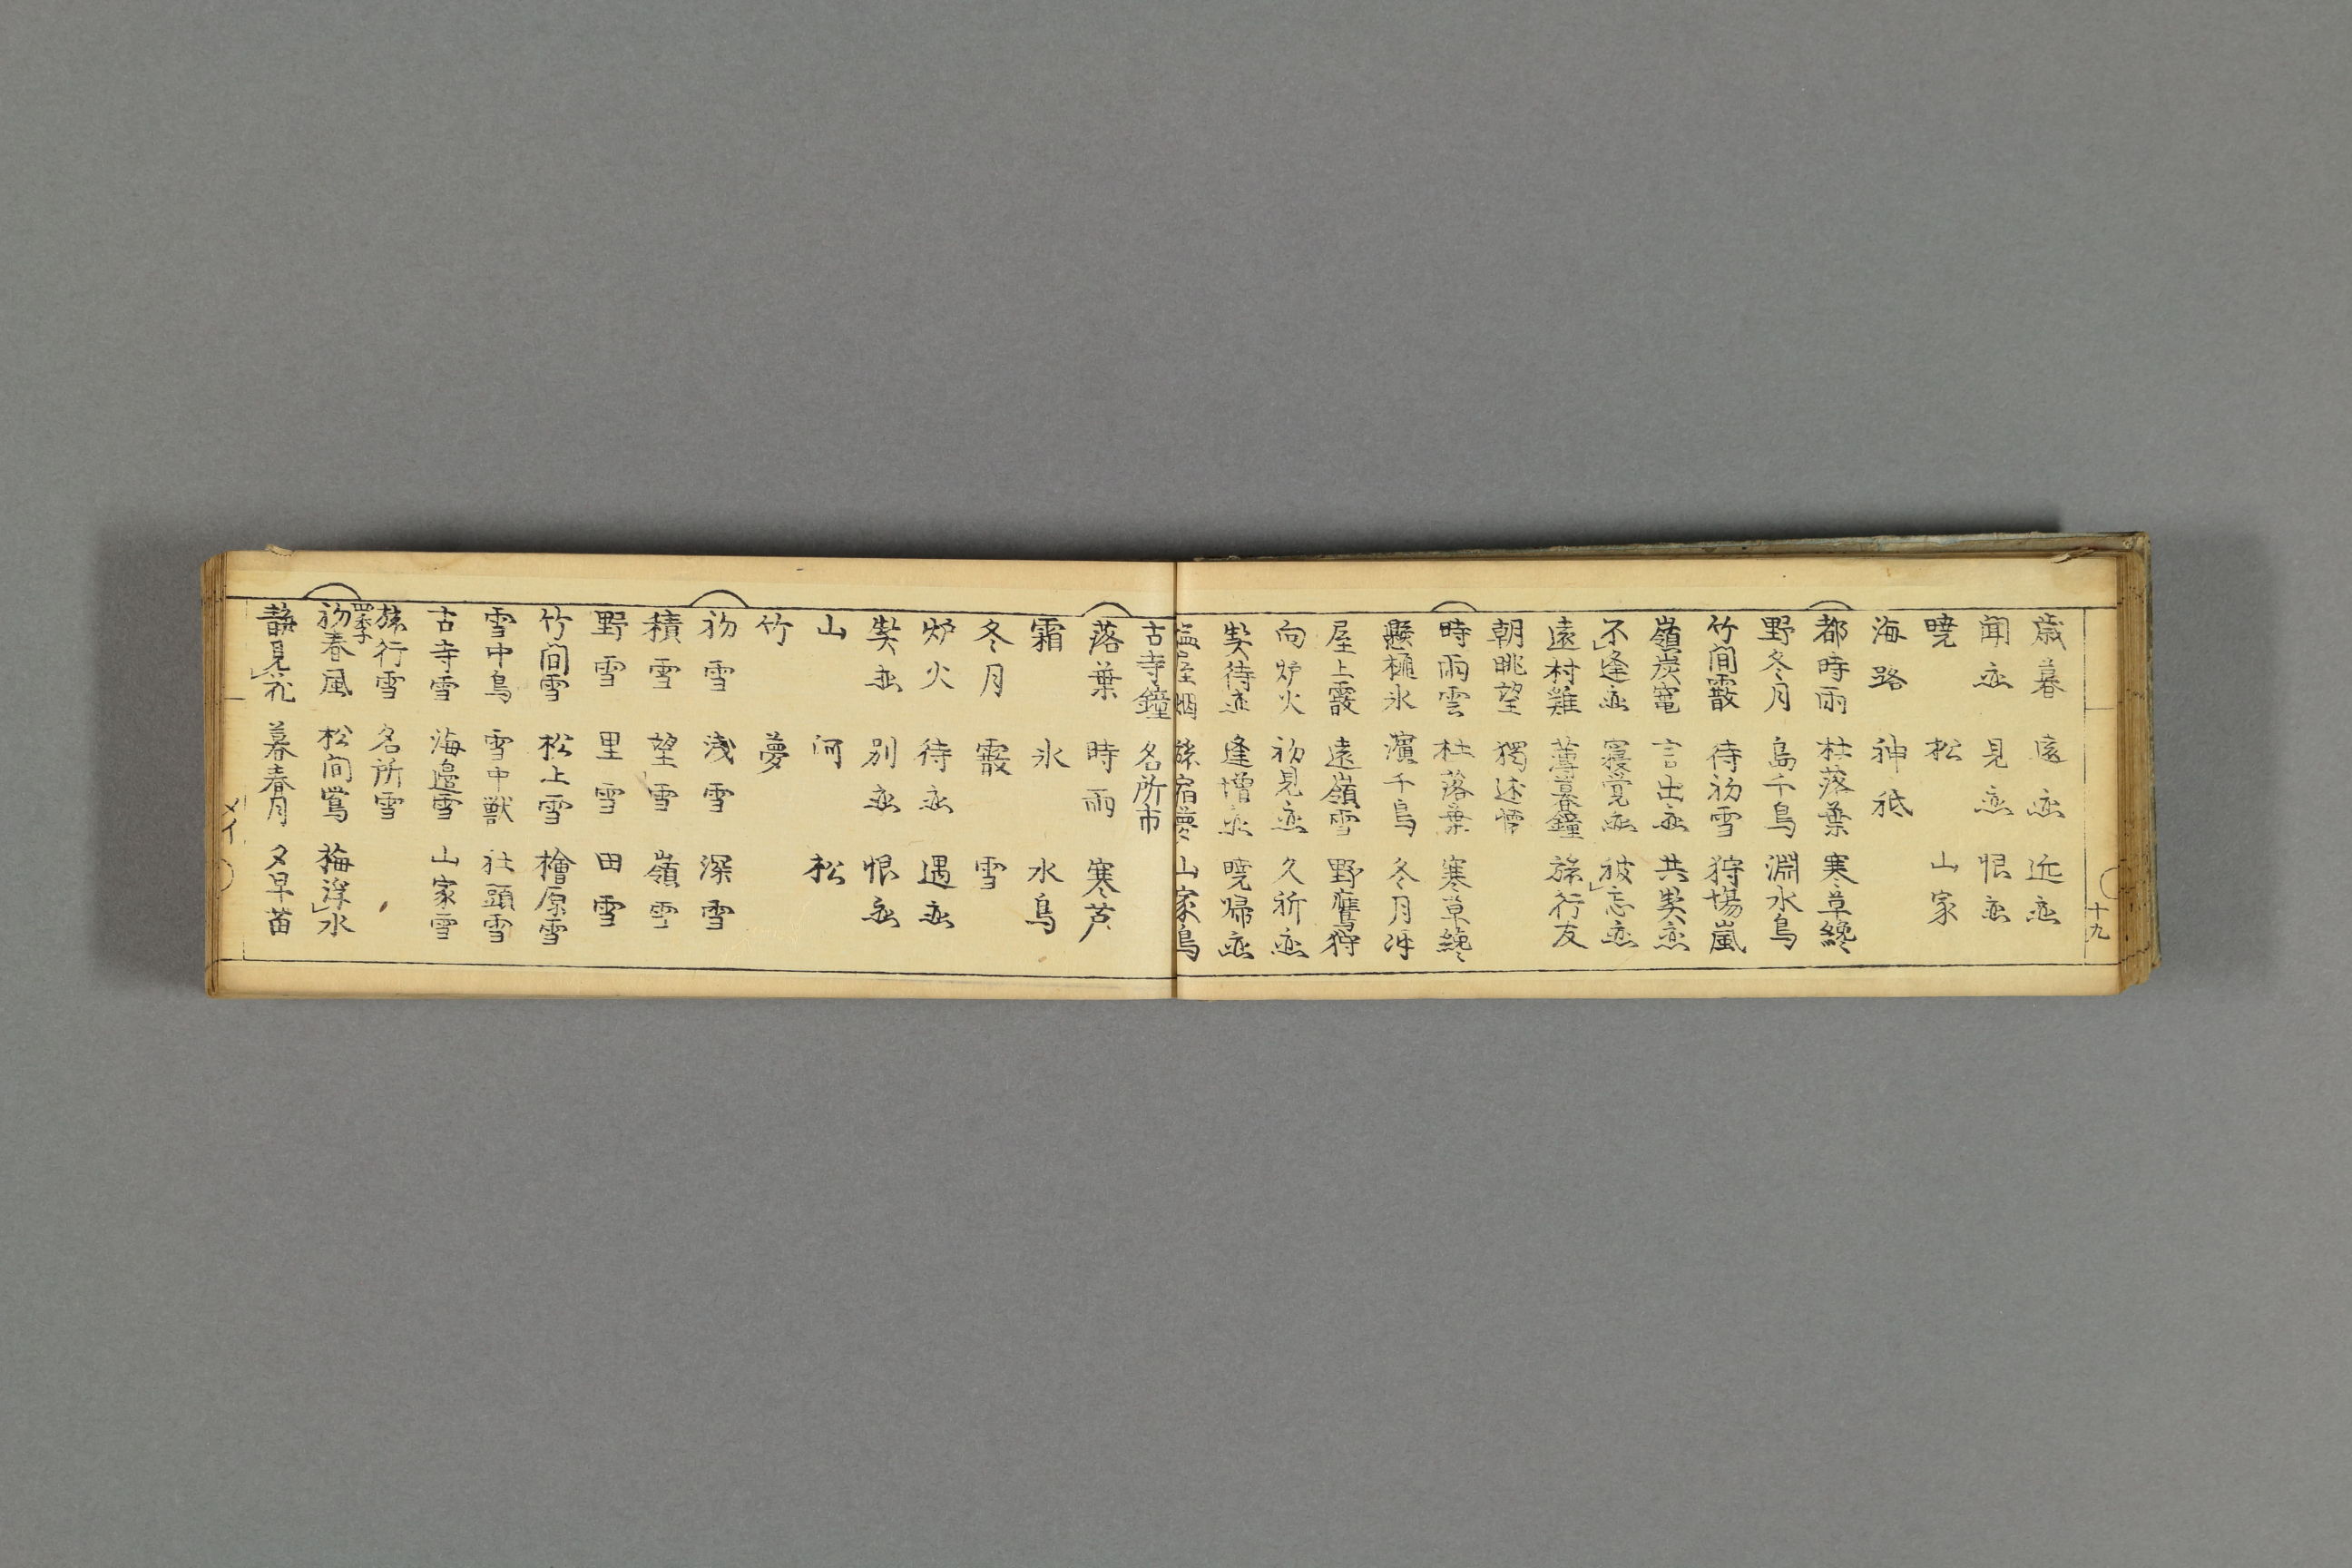 十九
歳暮 遠恋 近恋
聞恋 見恋 恨恋
暁 松 山家
海路 神祇
都時雨 杜落葉 寒草纔
野冬月 島千鳥 淵水鳥
竹間霰 待初雪 狩場嵐
嶺炭竃 言出恋 共契恋
不逢恋 寝覚恋 被忘恋
遠村雞 薄暮鐘 旅行友
朝眺望 獨述懐
時雨雲 杜落葉 寒草纔
懸樋氷 濱千鳥 冬月冴
屋上霰 遠嶺雪 野鷹狩
向炉火 初見恋 久祈恋
契待恋 逢増恋 暁帰恋
塩屋烟 旅宿夢 山家鳥
古寺鐘 名所市
落葉 時雨 寒芦
霜 氷 水鳥
冬月 霰 雪
炉火 待恋 遇恋
契恋 別恋 恨恋
山 河 松
竹 夢
初雪 浅雪 深雪
積雪 望雪 嶺雪
野雪 里雪 田雪
竹間雪 松上雪 檜原雪
雪中鳥 雪中獣 社頭雪
古寺雪 海邉雪 山家雪
旅行雪 名所雪
四季
初春風 松間鶯 梅浮水
静見花 暮春月 夕早苗
メイ